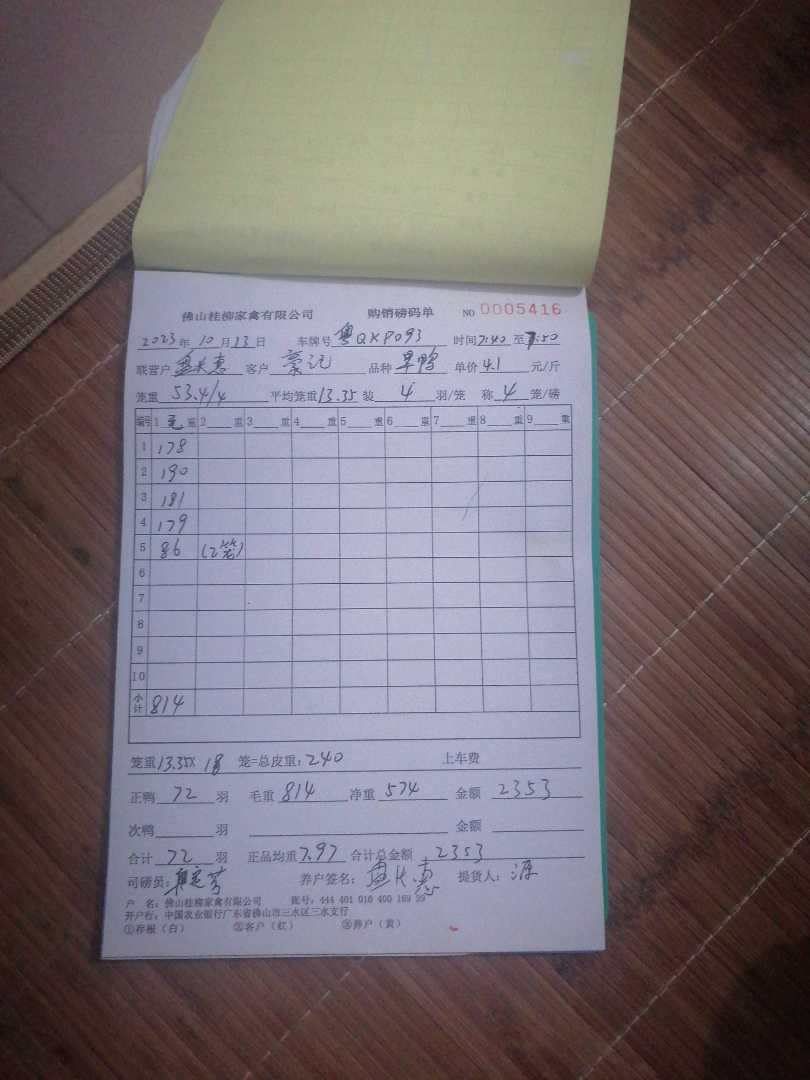 佛山桂柳家禽有限公司 购销磅码单 NO 0005416
2023年10月13日 车牌号粤QXP093 时间7:40至7:50
联营户 客户豪记 品种旱鸭 单价4.1元/斤
笼重53.4/4 平均笼重13.35 装4羽/笼 称4笼/磅
编号 1毛重 2重 3重 4重 5重 6重 7重 8重 9重
1 178
2 190
3 181
4 179
5 86 (2笼)
6
7
8
9
10
小计 814
笼重13.35×18笼=总皮重:240 上车费
正鸭72羽 毛重814 净重574 金额2353
次鸭 羽 金额
合计72羽 正品均重7.97 合计总金额2353
司磅员: 养户签名: 提货人:源
户 名:佛山桂柳家禽有限公司 账号:444 401 010 400 169 39
开户行:中国农业银行广东省佛山市三水区三水支行
①存根(白) ②客户(红) ③养户(黄)